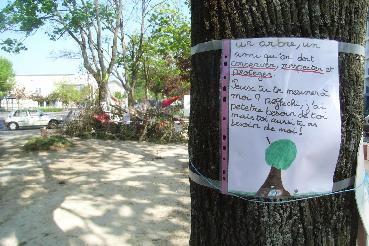 un arbre, un
ami qu'on doit
conserver, respecter et
protéger.
veux tu te mourer à
moi ? réfléchi, j'ai
petetre besoin de toi
mais toi aussi tu as
besoin de moi !